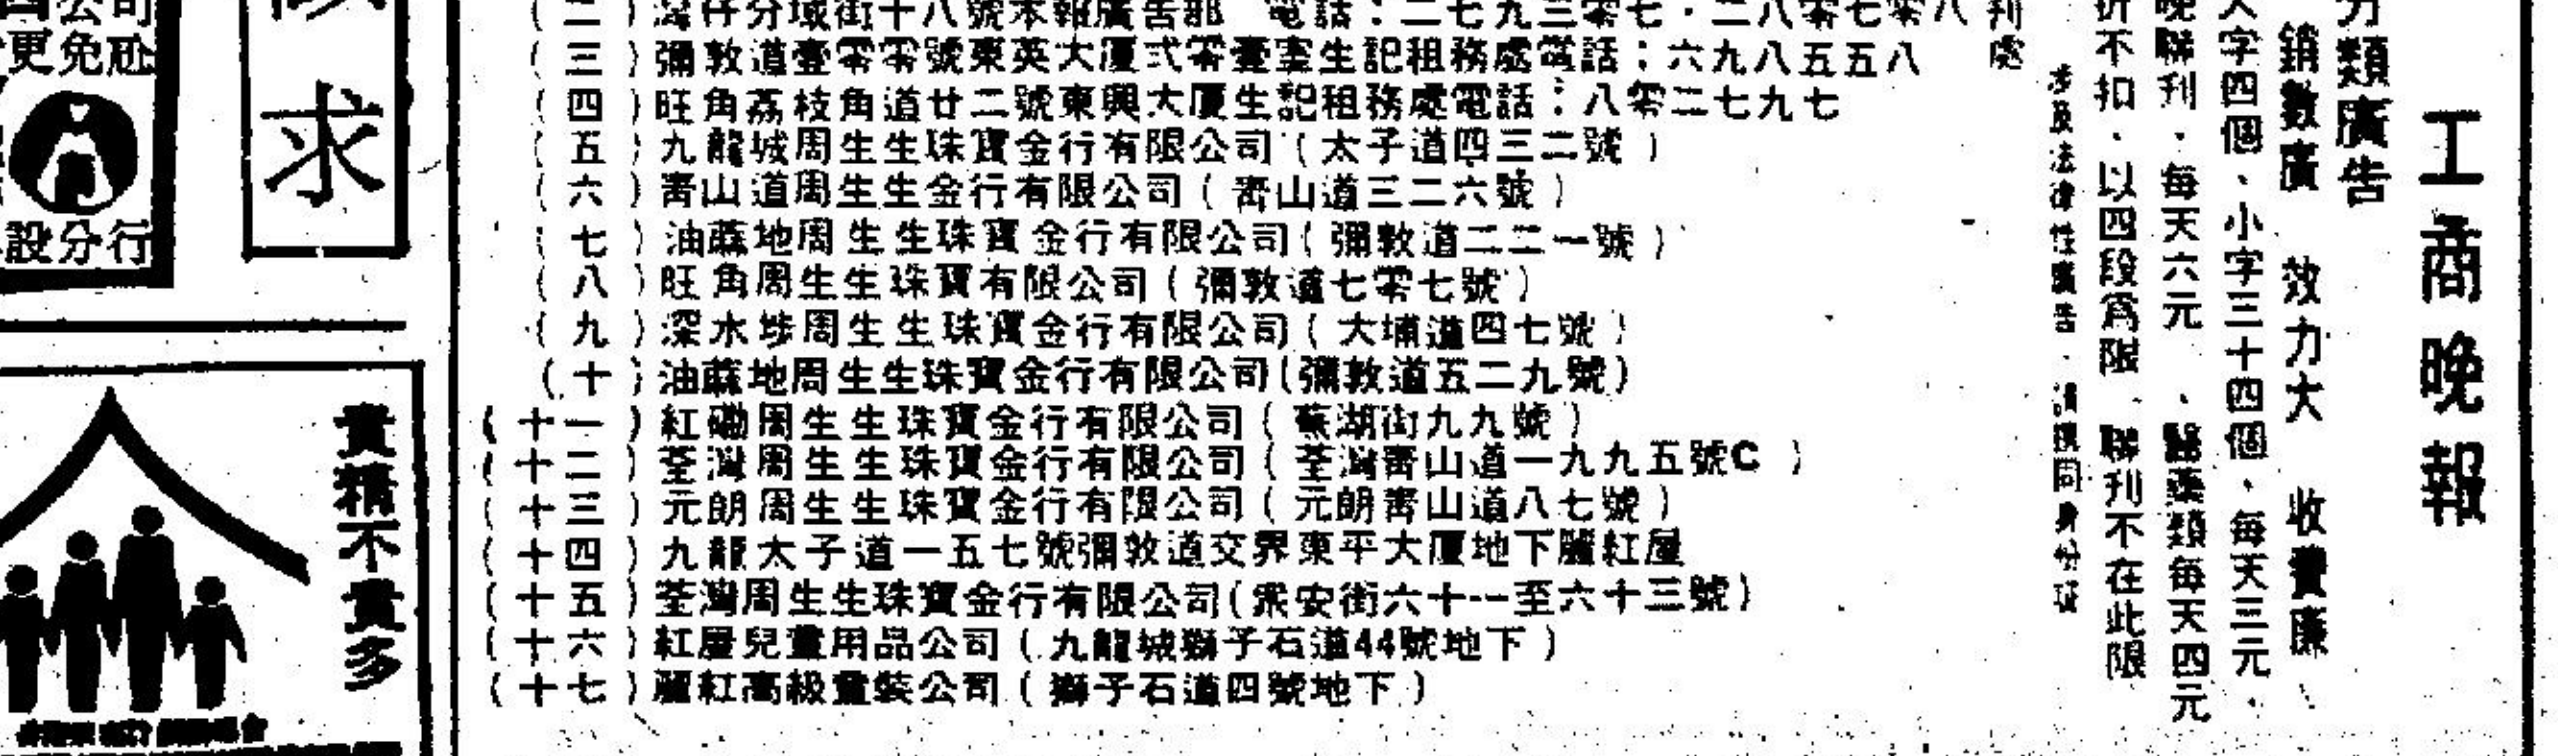 工商晚報
分類廣告
銷數廣 效力大 收費廉
大字四個、小字三十四個、每天三元、
晚聯刊、每天六元、醫藥類每天四元
折不扣、以四段為限、聯刊不在此限
涉及法律性廣告、請携同身份証
刊處
(二)灣仔分域街十八號本報廣告部 電話：二七九三零七·二八零七零八
(三)彌敦道壹零零號東英大厦弍零壹室生記租務處電話：六九八五五八
(四)旺角荔枝角道廿二號東興大厦生記租務處電話：八零二七九七
(五)九龍城周生生珠寶金行有限公司(太子道四三二號)
(六)靑山道周生生金行有限公司(靑山道三二六號)
(七)油蔴地周生生珠寶金行有限公司(彌敦道二二一號)
(八)旺角周生生珠寶有限公司(彌敦道七零七號)
(九)深水埗周生生珠寶金行有限公司(大埔道四七號)
(十)油蔴地周生生珠寶金行有限公司(彌敦道五二九號)
(十一)紅磡周生生珠寶金行有限公司(蕪湖街九九號)
(十二)荃灣周生生珠寶金行有限公司(荃灣靑山道一九九五號C)
(十三)元朗周生生珠寶金行有限公司(元朗靑山道八七號)
(十四)九龍太子道一五七號彌敦道交界東平大厦地下麗紅屋
(十五)荃灣周生生珠寶金行有限公司(衆安街六十一至六十三號)
(十六)紅屋兒童用品公司(九龍城獅子石道44號地下)
(十七)麗紅高級童裝公司(獅子石道四號地下)
求
公司
更免
設分行
貴精不貴多